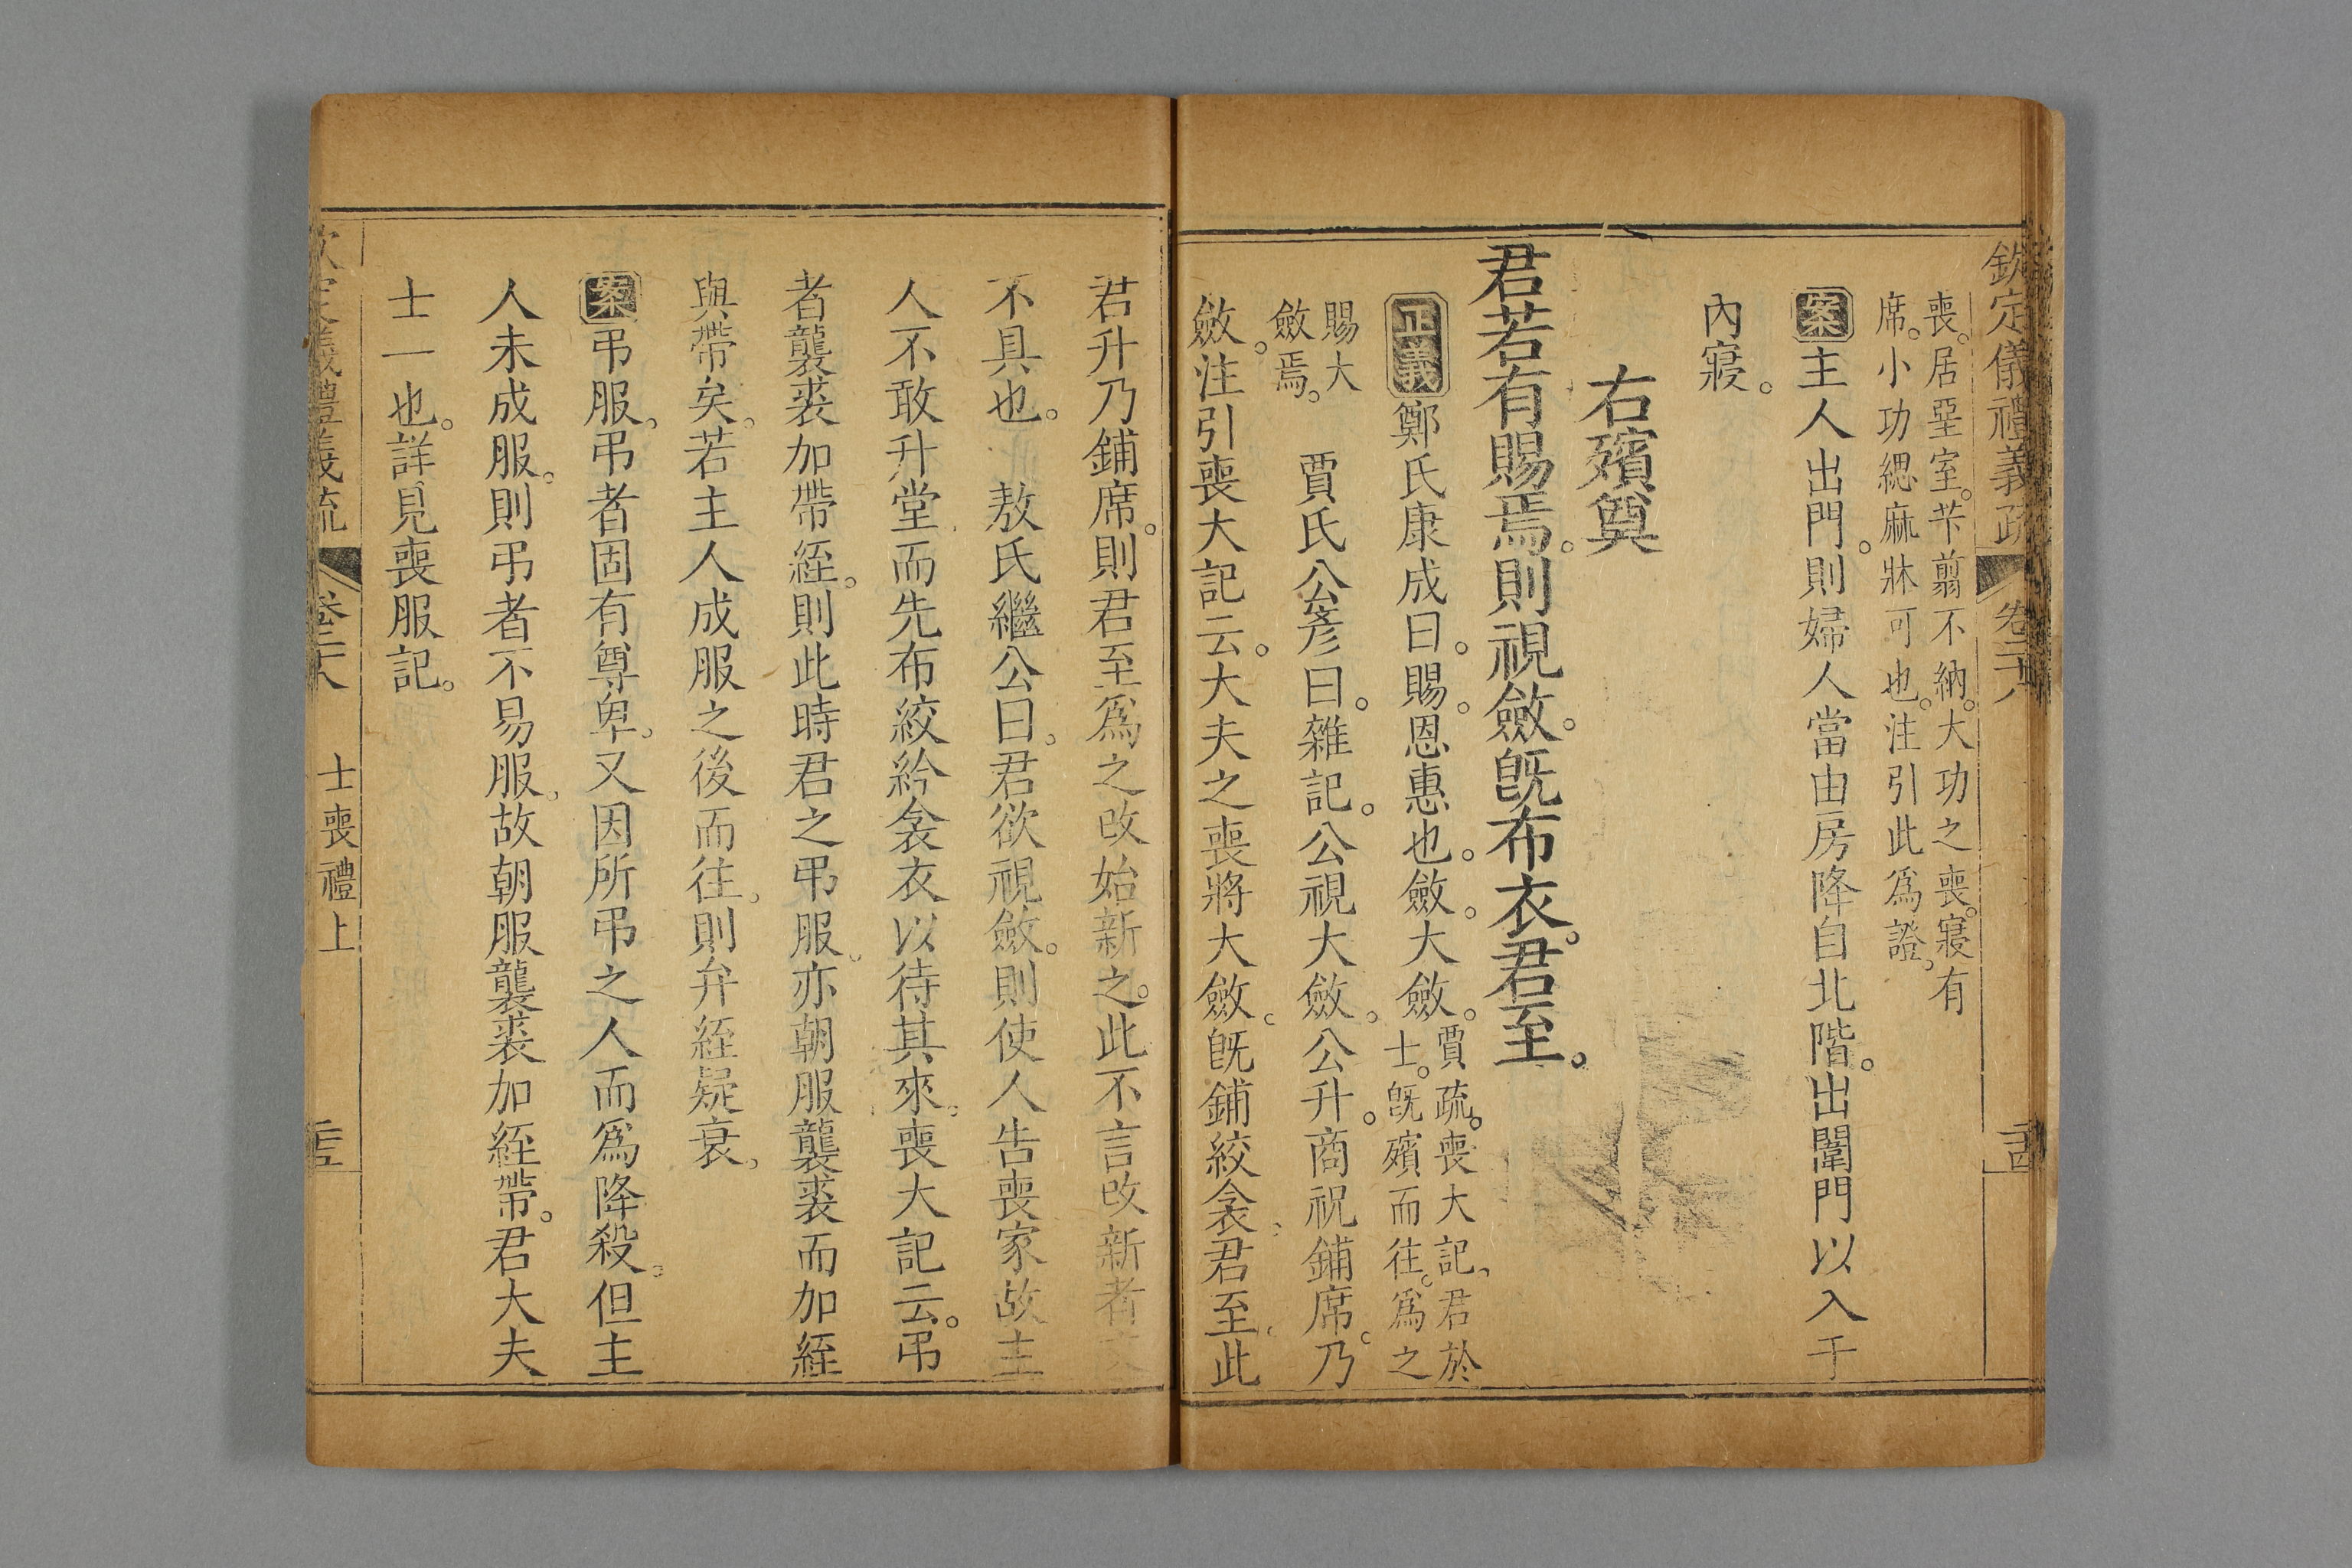 欽定儀禮義疏 卷二十八
喪。居堊室。苄翦不納。大功之喪。寢有
席。小功緦麻牀可也。注引此爲證。
案主人出門。則婦人當由房降自北階。出闈門以入于
內寢。
右殯奠
君若有賜焉。則視斂。既布衣。君至。
正義鄭氏康成曰。賜。恩惠也。斂。大斂。賈疏。喪大記。君於
士。既殯而往。爲之
賜大
斂焉。
賈氏公彥曰。雜記。公視大斂。公升。商祝鋪席。乃
斂。注引喪大記云。大夫之喪將大斂。既鋪絞衾。君至。此
君升乃鋪席。則君至爲之改始新之。此不言改新者
不具也。 敖氏繼公曰。君欲視斂。則使人告喪家故主
人不敢升堂而先布絞紟衾衣以待其來。喪大記云。弔
者襲裘加帶絰。則此時君之弔服。亦朝服襲裘而加絰
與帶矣。若主人成服之後而往。則弁絰疑衰。
案弔服。弔者固有尊卑。又因所弔之人而爲降殺。但主
人未成服。則弔者不易服。故朝服襲裘加絰帶。君大夫
士一也。詳見喪服記。
士喪禮上